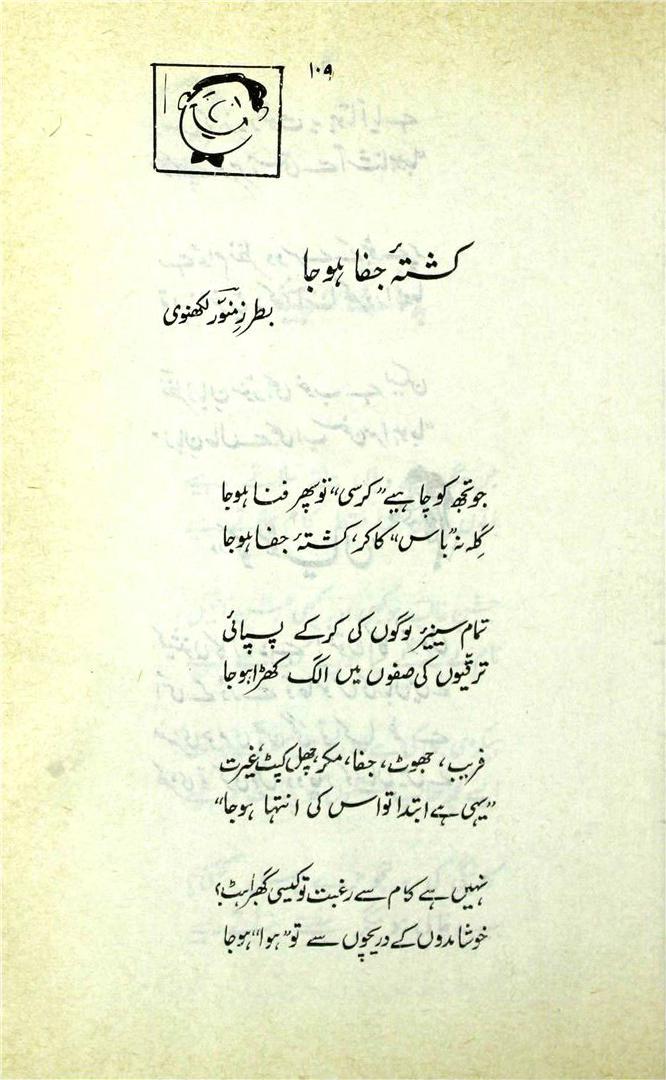 ۱۰۹
کشتۂ جفا ہوجا
بطرزِ منوّر لکھنوی
جو تجھ کو چاہیے "کرسی" تو پھر فنا ہوجا
گِلہ نہ "باس" کا کر، کشتۂ جفا ہوجا
تمام سینیئر لوگوں کی کرکے پسپائی
ترقیوں کی صفوں میں الگ کھڑا ہوجا
فریب، جھوٹ، جفا، مکر، چھل کپٹ، غیرت
"یہی ہے ابتدا تو اس کی انتہا ہوجا"
نہیں ہے کام سے رغبت تو کیسی گھبراہٹ؟
خوشامدوں کے دریچوں سے تو "ہوا" ہوجا